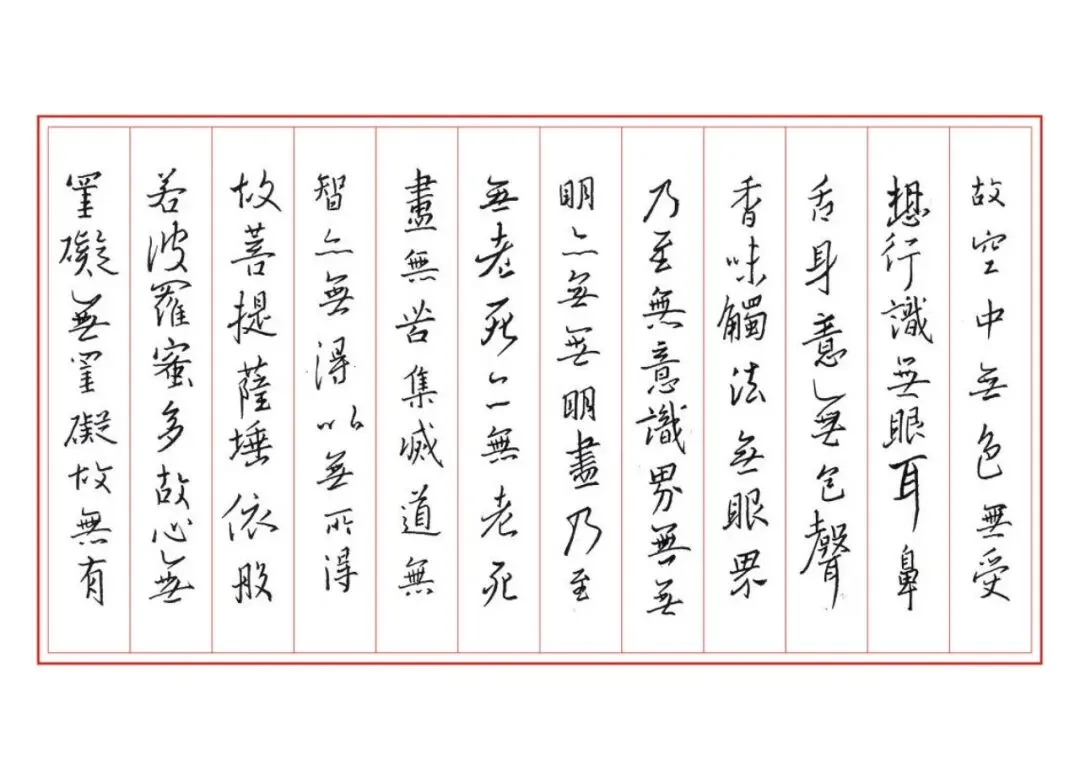 故空中無色無受
想行識無眼耳鼻
舌身意無色聲
香味觸法無眼界
乃至無意識界無無
明亦無無明盡乃至
無老死亦無老死
盡無苦集滅道無
智亦無得以無所得
故菩提薩埵依般
若波羅蜜多故心無
罣礙無罣礙故無有